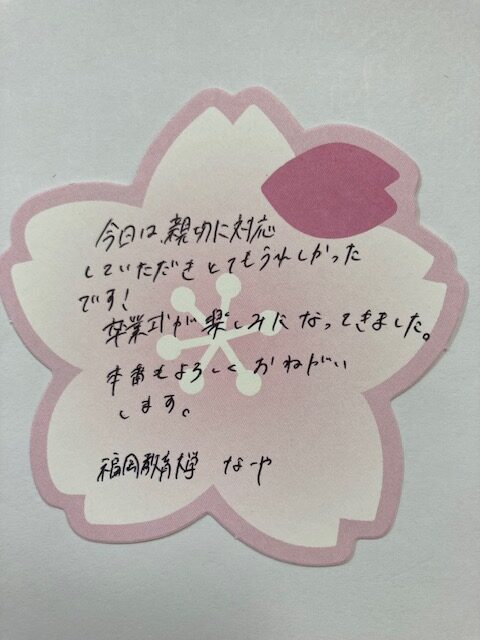 今日は、親切に対応
していただきとてもうれしかった
です!
卒業式が楽しみになってきました。
本番もよろしくおねがい
します。
福岡教育大学 なーや